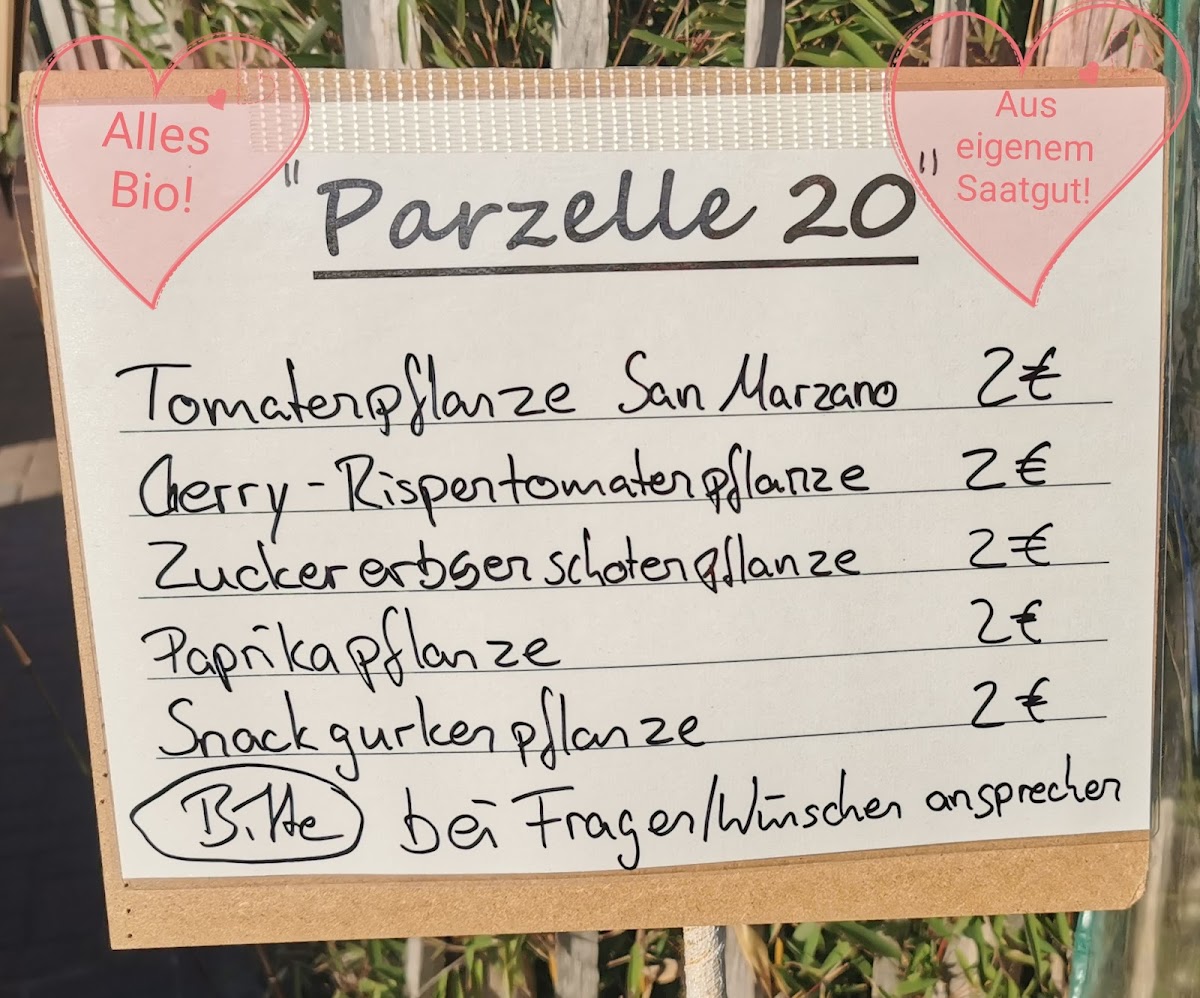 Alles
Bio!
Aus
eigenem
Saatgut!
"Parzelle 20"
Tomatenpflanze San Marzano 2€
Cherry-Rispentomatenpflanze 2€
Zuckererbsenschotenpflanze 2€
Paprikapflanze 2€
Snackgurkenpflanze 2€
Bitte bei Fragen/Wünschen ansprechen